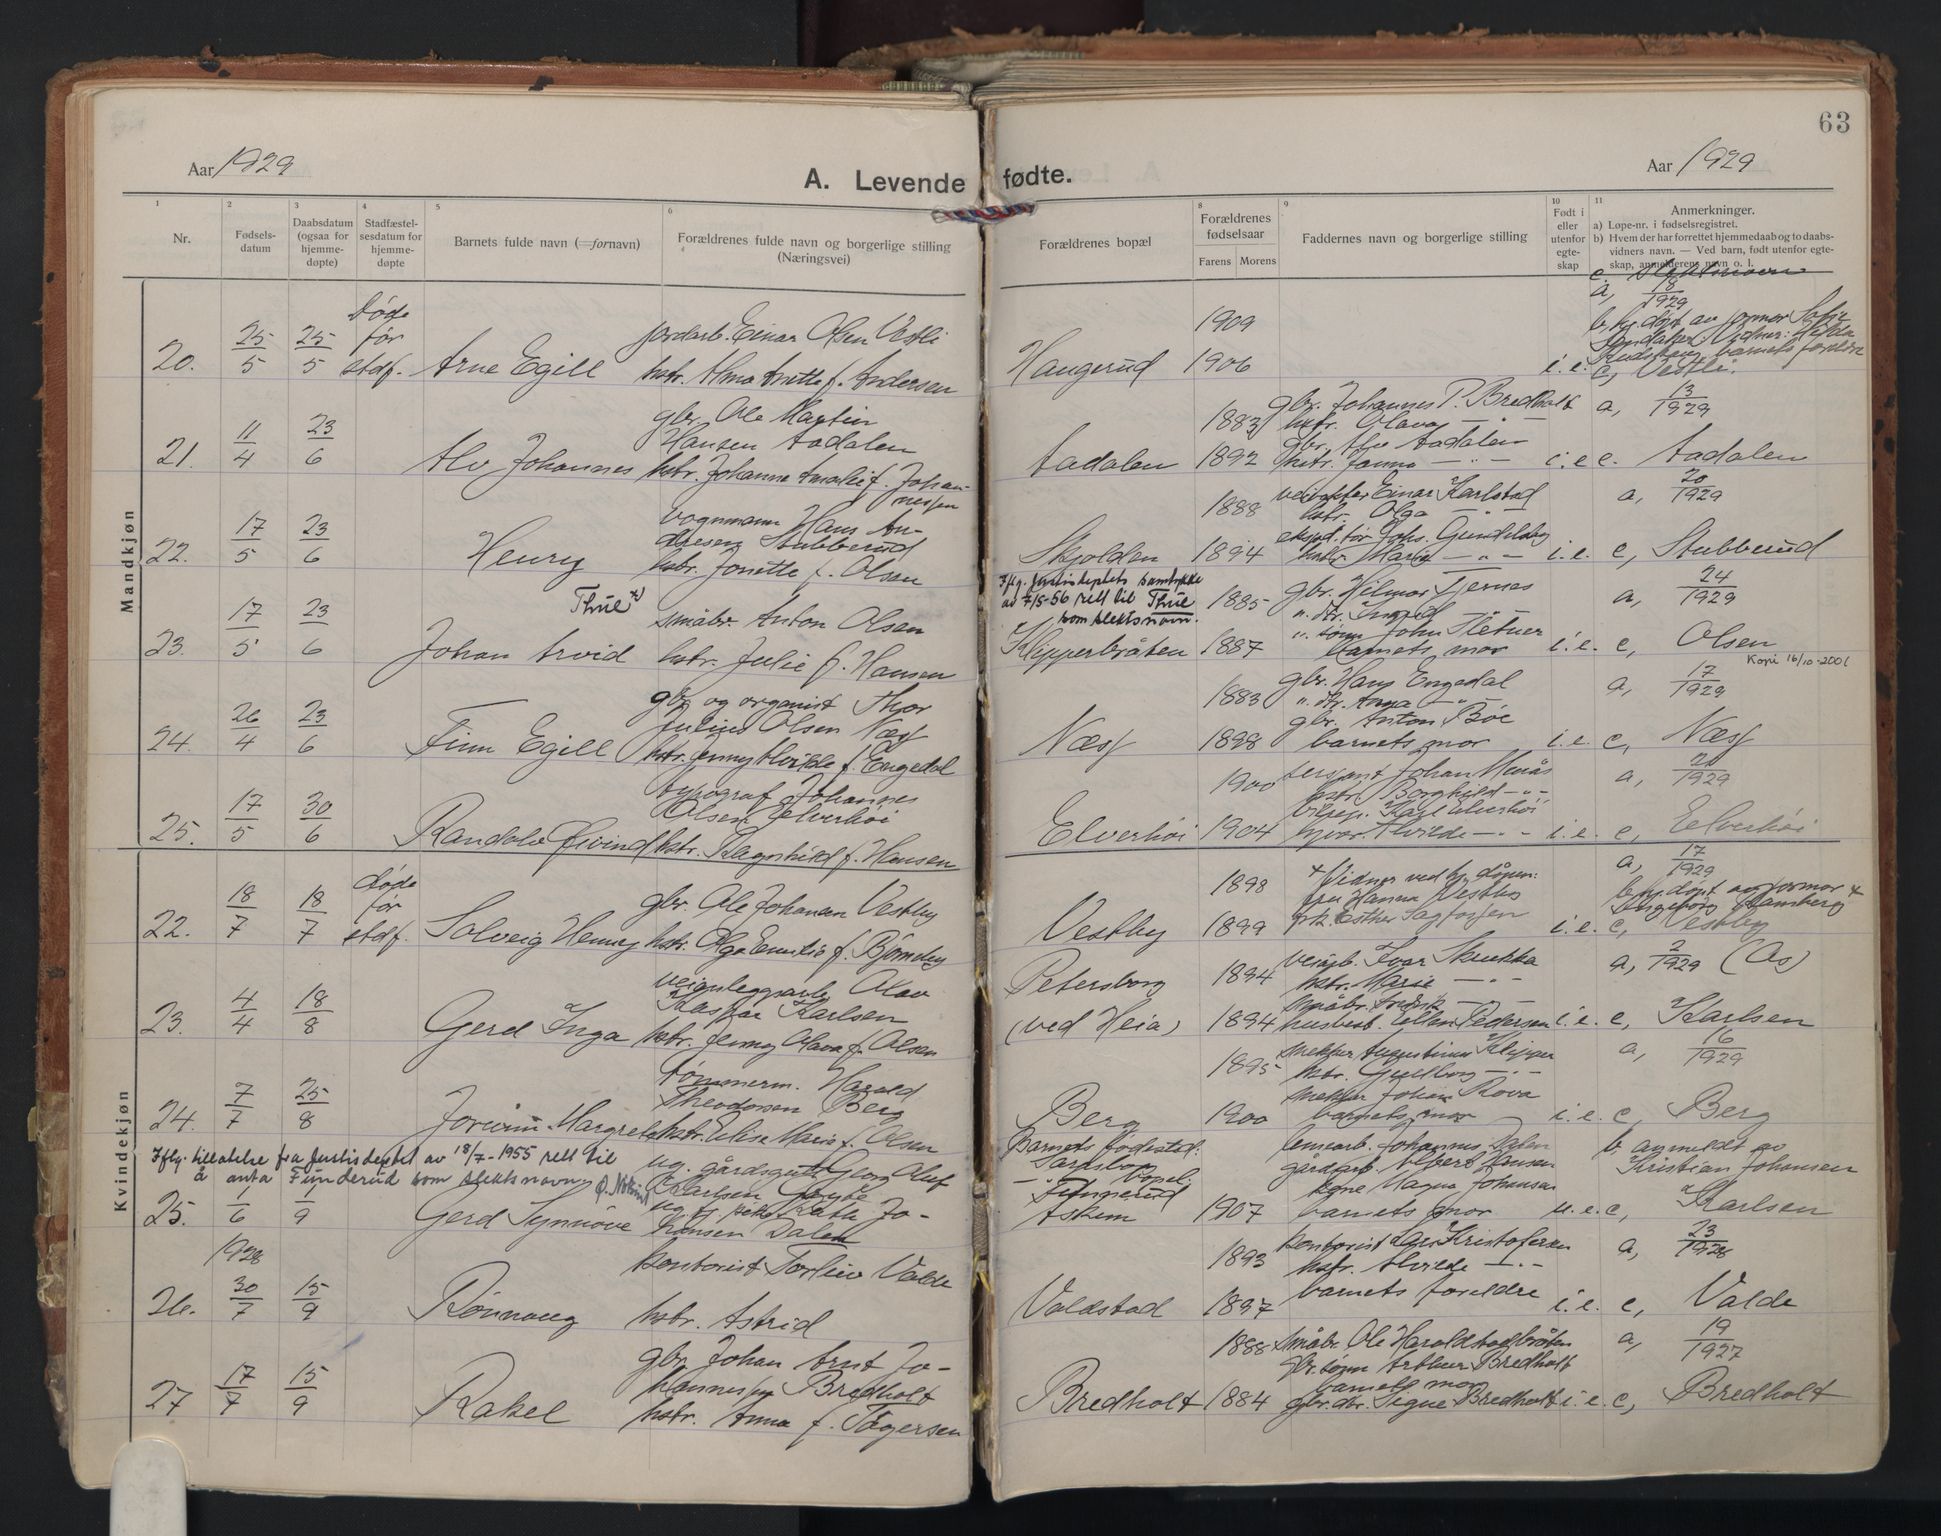 63
Aar 1929
A. Levende fødte.
Aar 1929
1 Nr.
2 Fødselsdatum
3 Daabsdatum (ogsaa for hjemmedøpte)
4 Stadfæstelsesdatum for hjemmedøpte
5 Barnets fulde navn (fornavn)
6 Forældrenes fulde navn og borgerlige stilling (Næringsvei)
Forældrenes bopæl
8 Forældrenes fødselsaar
Farens Morens
9 Faddernes navn og borgerlige stilling
10 Født i eller utenfor egteskap
11 Anmerkninger.
a) Løpe-nr. i fødselsregistret.
b) Hvem der har forrettet hjemmedaab og to daabsvidners navn. — Ved barn, født utenfor egteskap, anmelderens navn o. l.
Mandkjøn
20. 25/5 25/5 døde før stdf. Arne Egill
jordarb. Einar Olsen Vestli
hstr. Alma f. Andersen
Haugerud 1909 1906
i.e.
a, 18/1929
b, hj.døpt av jormor
barnets foreldre
c, Vestli.
21. 11/4 23/6 Alv Johannes
gbr. Ole Martin
Hansen Aadalen
hstr. Johanne Amalie f. Johannessen
Aadalen 1883 1892
gbr. Johannes P. Bredholt
hstr. Olava — " —
gbr. Aadalen
hstr. — " — i.e.
a, 13/1929
c. Aadalen
22. 17/5 23/6 Henry
vognmann Hans Andresen Stubberud
hstr. Jonette f. Olsen
Skjolden 1888 1894
veivokter Einar Karlstad
hstr. Olga — " —
eksped.før Johs. Gundelsby
hstr. Marie — " — i.e.
a, 20/1929
c, Stubberud
23. 17/5 23/6 Johan Arvid Thül x)
småbr. Anton Olsen
hstr. Julie f. Hansen
Iflg. Justisdeptets samtykke
av 7/5-56 rett til Thül
som slektsnavn.
Klipperbråten 1885 1887
gbr. Hilmar Gjernes
" dtr. Ingrid — " —
" sønn John Sletner
barnets mor i.e.
a, 24/1929
c, Olsen
Kopi 16/10-2001
24. 26/4 23/6 Finn Egill
gbr. og organist Thor
Julius Olsen Næss
hstr. Jenny Alvilde f. Engedal
Næss 1883 1898
gbr. Hans Engedal
" dtr. Anga — " —
gbr. Anton Bøe
barnets mor i.e.
a, 17/1929
c, Næss
25. 17/5 30/6 Randolv Øivind
typograf Johannes
Olsen Elverhøi
hstr. Ragnhild f. Hansen
Elverhøi 1900 1904
sersjant Johan
hstr. Borghild — " —
Karl Elverhøi
Alvilde — " — i.e.
a, 1929
c, Elverhøi
Kvindekjøn
22. 18/7 18/7 døde før stdf. Solveig Henny
gbr. Ole Johanan Vestby
hstr. Olga Emilie f. Bjørneby
Vestby 1898 1899
x Vidner ved hj.dåpen:
fru Hanna Vestby
frk. Esther i.e.
a, 17/1929
b, hj.døpt av jormor x
Ingeborg
c, Vestby
23. 4/4 18/8 Gerd Inga
veianleggsarb. Olav
Kaspar Karlsen
hstr. Jenny Olava f. Olsen
Petersborg
(ved Heia) 1894 1894
veiarb. Ivar Skrukka
hstr. Marie — " —
småbr. Fredrik — " —
husbest. Ellen Pedersen i.e.
a, 2/1929 (As)
c, Karlsen
24. 7/7 25/8 Jorunn Margrete
tømmerm. Harald
Theodorsen Berg
hstr. Elise Marie f. Olsen
Berg 1895 1900
snekker Augustinus Klipper
hstr. Gudborg — " —
snekker Johan Rova
barnets mor i.e.
a, 16/1929
c, Berg
Iflg. tillatelse fra Justisdeptet av 18/7-1955 rett til
å anta Funderud som slektsnavn
25. 1/6 1/9 Gerd Synnøve
ug. gårdsgutt Georg Olaf
Karlsen
Johansen Dalen
Barnets fødested:
Sarpsborg
— " — bopel:
Askim 1907
Johannes Dalen
gårdarb. Albert Hansen
Magna Johansen
barnets mor u.e.
b, anmeldt av
Kristian Johansen
c, Karlsen
26. 1928 30/7 15/9 Rønnaug
kontorist Torleiv Valde
hstr. Astrid
Valdstad 1893 1897
kontorist Lars Kristofersen
hstr. Alvilde — " —
barnets foreldre i.e.
a, 23/1928
c, Valde
27 17/7 15/9 Rakel
gbr. Johan Arnt Johannessen Bredholt
hstr. Anna f. Tågersen
Bredholt 1888 1884
småbr. Ole Haraldstadbråten
gbr.sønn Arthur Bredholt
barnets mor
gbr.dtr. Signe Bredholt i.e.
a, 19/1927
c, Bredholt